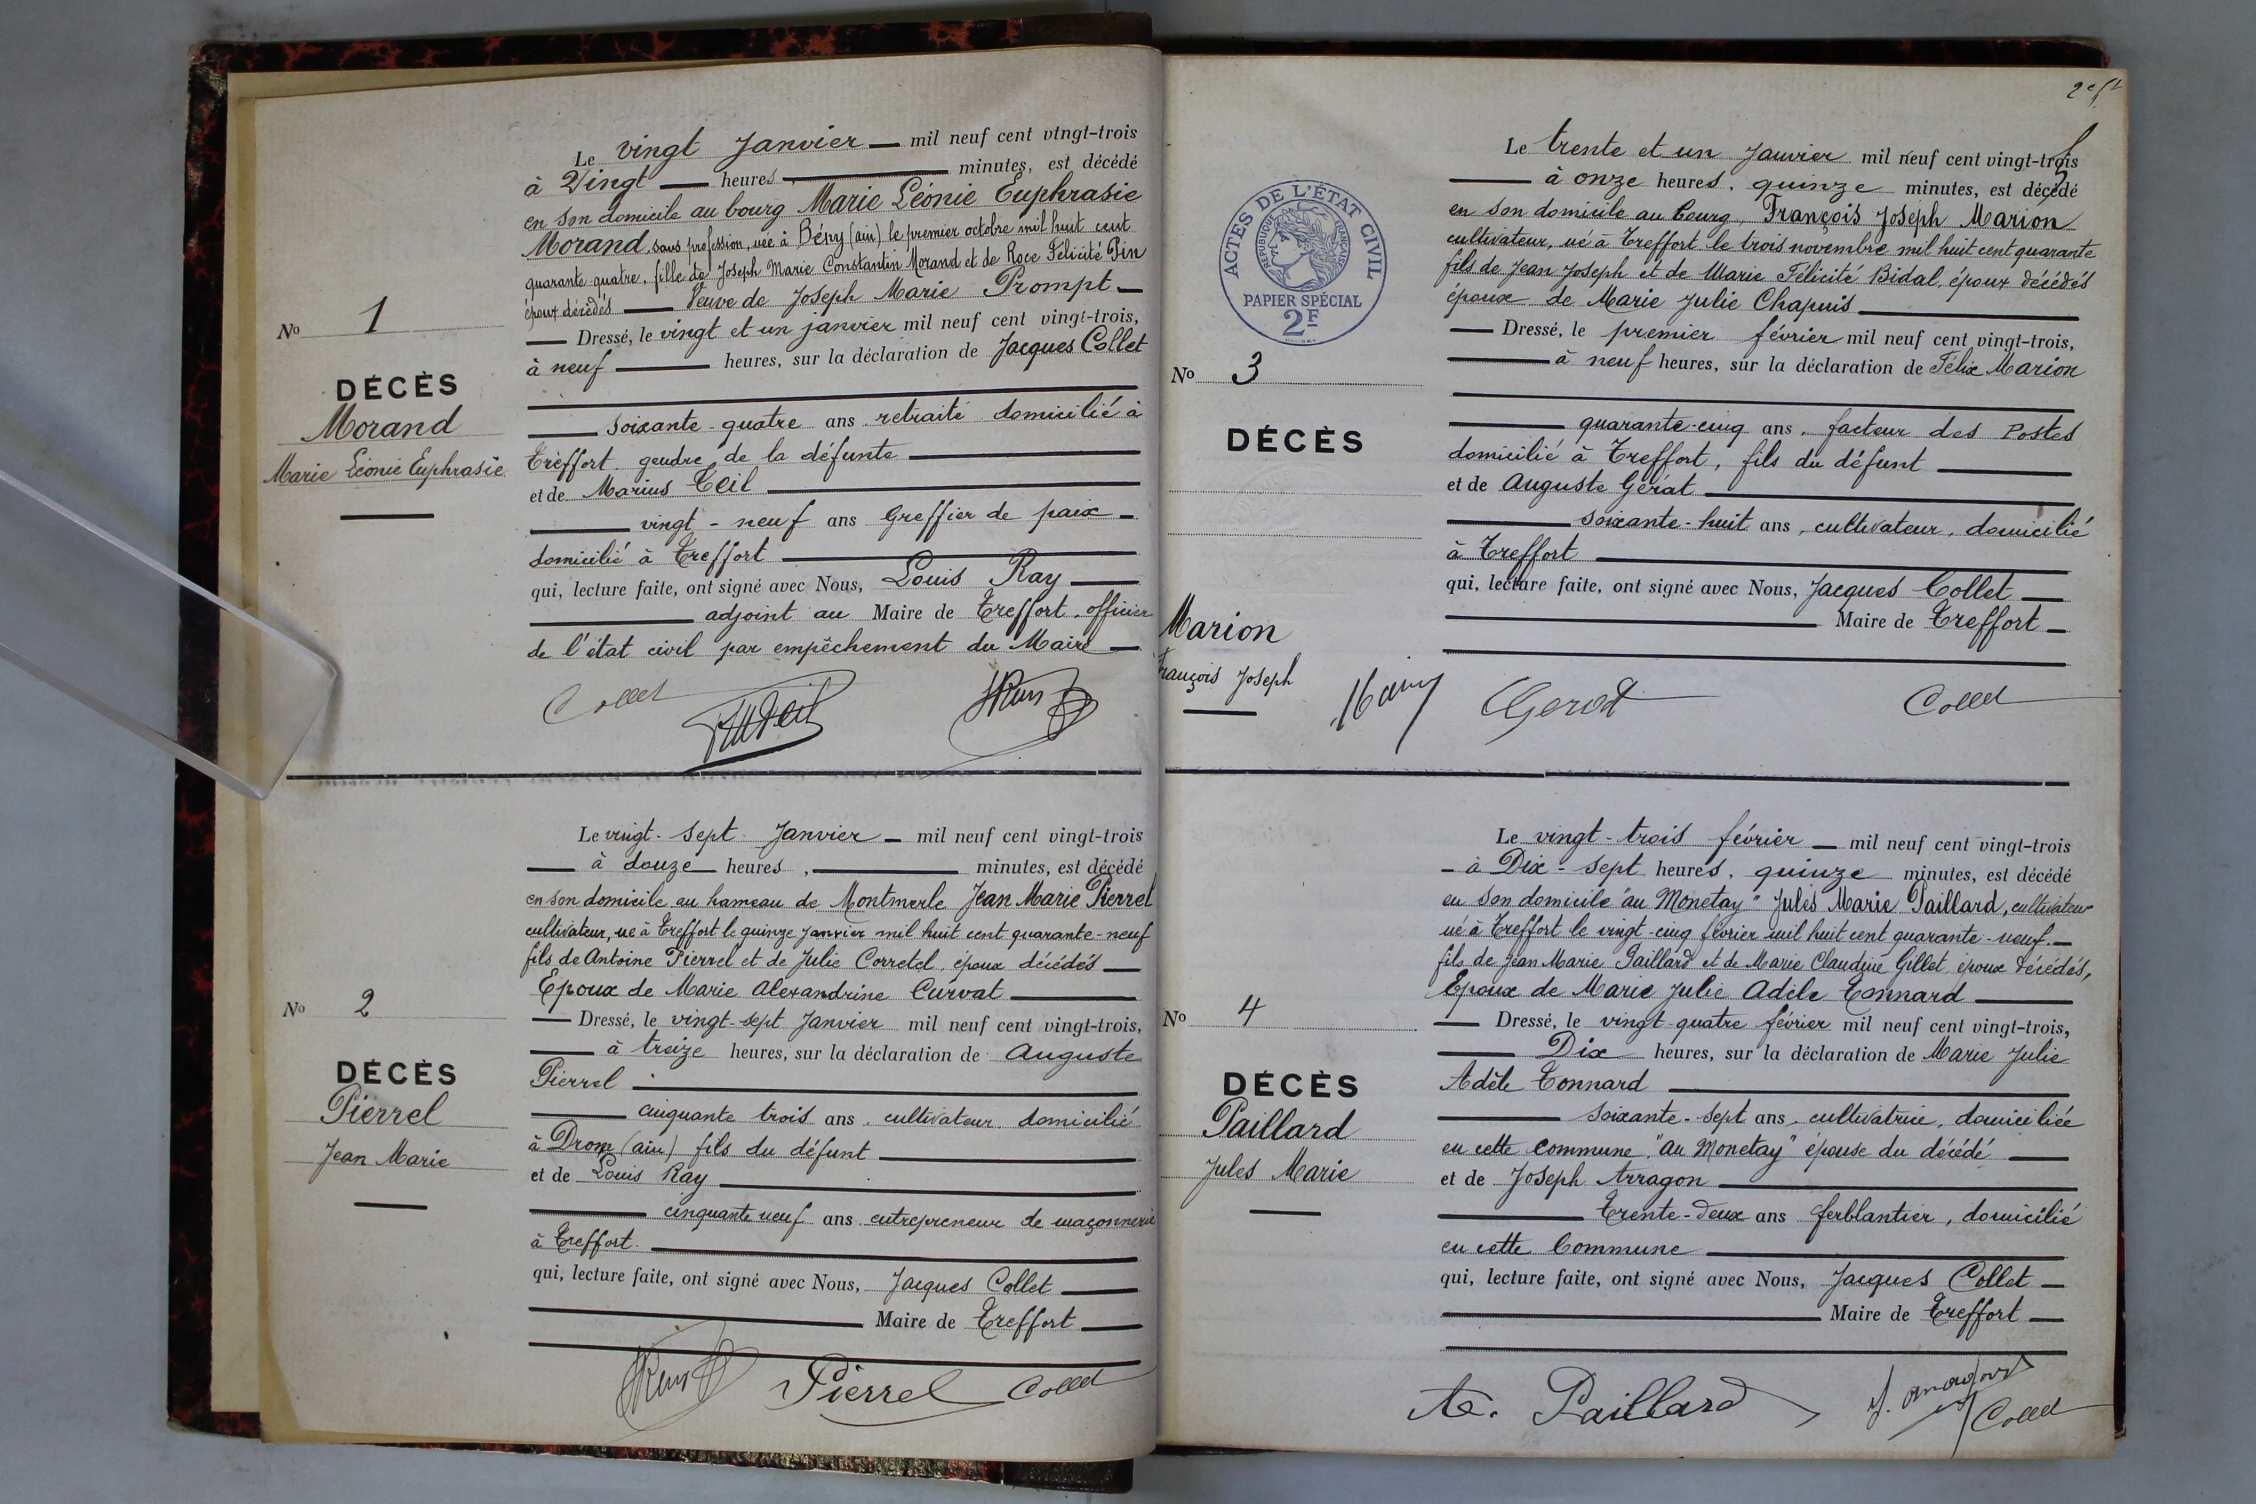 Le vingt Janvier mil neuf cent vingt-trois
à Vingt heures minutes, est décédé
en son domicile au bourg Marie Léonie Euphrasie
Morand, sans profession, née à Bény (ain) le premier octobre mil huit cent
quarante-quatre, fille de Joseph Marie Constantin Morand et de Roce Félicité Pin
époux décédés Veuve de Joseph Marie Prompt
No 1
Dressé, le vingt et un janvier mil neuf cent vingt-trois,
à neuf heures, sur la déclaration de Jacques Collet
DÉCÈS
Morand
Marie Léonie Euphrasie
soixante-quatre ans retraité domicilié à
Treffort gendre de la défunte
et de Marius Teil
vingt-neuf ans Greffier de paix
domicilié à Treffort
qui, lecture faite, ont signé avec Nous, Louis Ray
adjoint au Maire de Treffort, officier
de l'état civil par empêchement du Maire
Collet
Le vingt-sept Janvier mil neuf cent vingt-trois
à douze heures, minutes, est décédé
en son domicile au hameau de Montmerle Jean Marie Pierrel
cultivateur, né à Treffort le quinze Janvier mil huit cent quarante-neuf
fils de Antoine Pierrel et de Julie Corretel, époux décédés
Epoux de Marie Alexandrine Curvat
No 2
Dressé, le vingt-sept Janvier mil neuf cent vingt-trois,
à treize heures, sur la déclaration de Auguste
Pierrel
DÉCÈS
Pierrel
Jean Marie
cinquante trois ans, cultivateur domicilié
à Drom (ain) fils du défunt
et de Louis Ray
cinquante neuf ans entrepreneur de maçonnerie
à Treffort.
qui, lecture faite, ont signé avec Nous, Jacques Collet
Maire de Treffort
Pierrel Collet
Le trente et un Janvier mil neuf cent vingt-trois
à onze heures, quinze minutes, est décédé
en son domicile au bourg, François Joseph Marion
cultivateur, né à Treffort le trois novembre mil huit cent quarante
fils de Jean Joseph et de Marie Félicité Bidal, époux décédés
époux de Marie Julie Chapuis
ACTES DE L'ÉTAT CIVIL
RÉPUBLIQUE FRANÇAISE
PAPIER SPÉCIAL
2F
Dressé, le premier février mil neuf cent vingt-trois,
à neuf heures, sur la déclaration de Félix Marion
No 3
DÉCÈS
Marion
François Joseph
quarante-cinq ans, facteur des Postes
domicilié à Treffort, fils du défunt
et de Auguste Gérat
soixante-huit ans, cultivateur, domicilié
à Treffort
qui, lecture faite, ont signé avec Nous, Jacques Collet
Maire de Treffort
Gerat Collet
Le vingt-trois février mil neuf cent vingt-trois
à Dix-sept heures, quinze minutes, est décédé
en son domicile "au Monetay" Jules Marie Paillard, cultivateur
né à Treffort le vingt-cinq février mil huit cent quarante-neuf.
fils de Jean Marie Paillard et de Marie Claudine Gillet époux décédés,
Epoux de Marie Julie Adèle Tonnard
No 4
Dressé, le vingt-quatre février mil neuf cent vingt-trois,
Dix heures, sur la déclaration de Marie Julie
Adèle Tonnard
DÉCÈS
Paillard
Jules Marie
soixante-sept ans, cultivatrice, domiciliée
en cette commune, "au Monetay" épouse du décédé
et de Joseph Arragon
Trente-deux ans ferblantier, domicilié
en cette Commune
qui, lecture faite, ont signé avec Nous, Jacques Collet
Maire de Treffort
Paillard
Collet